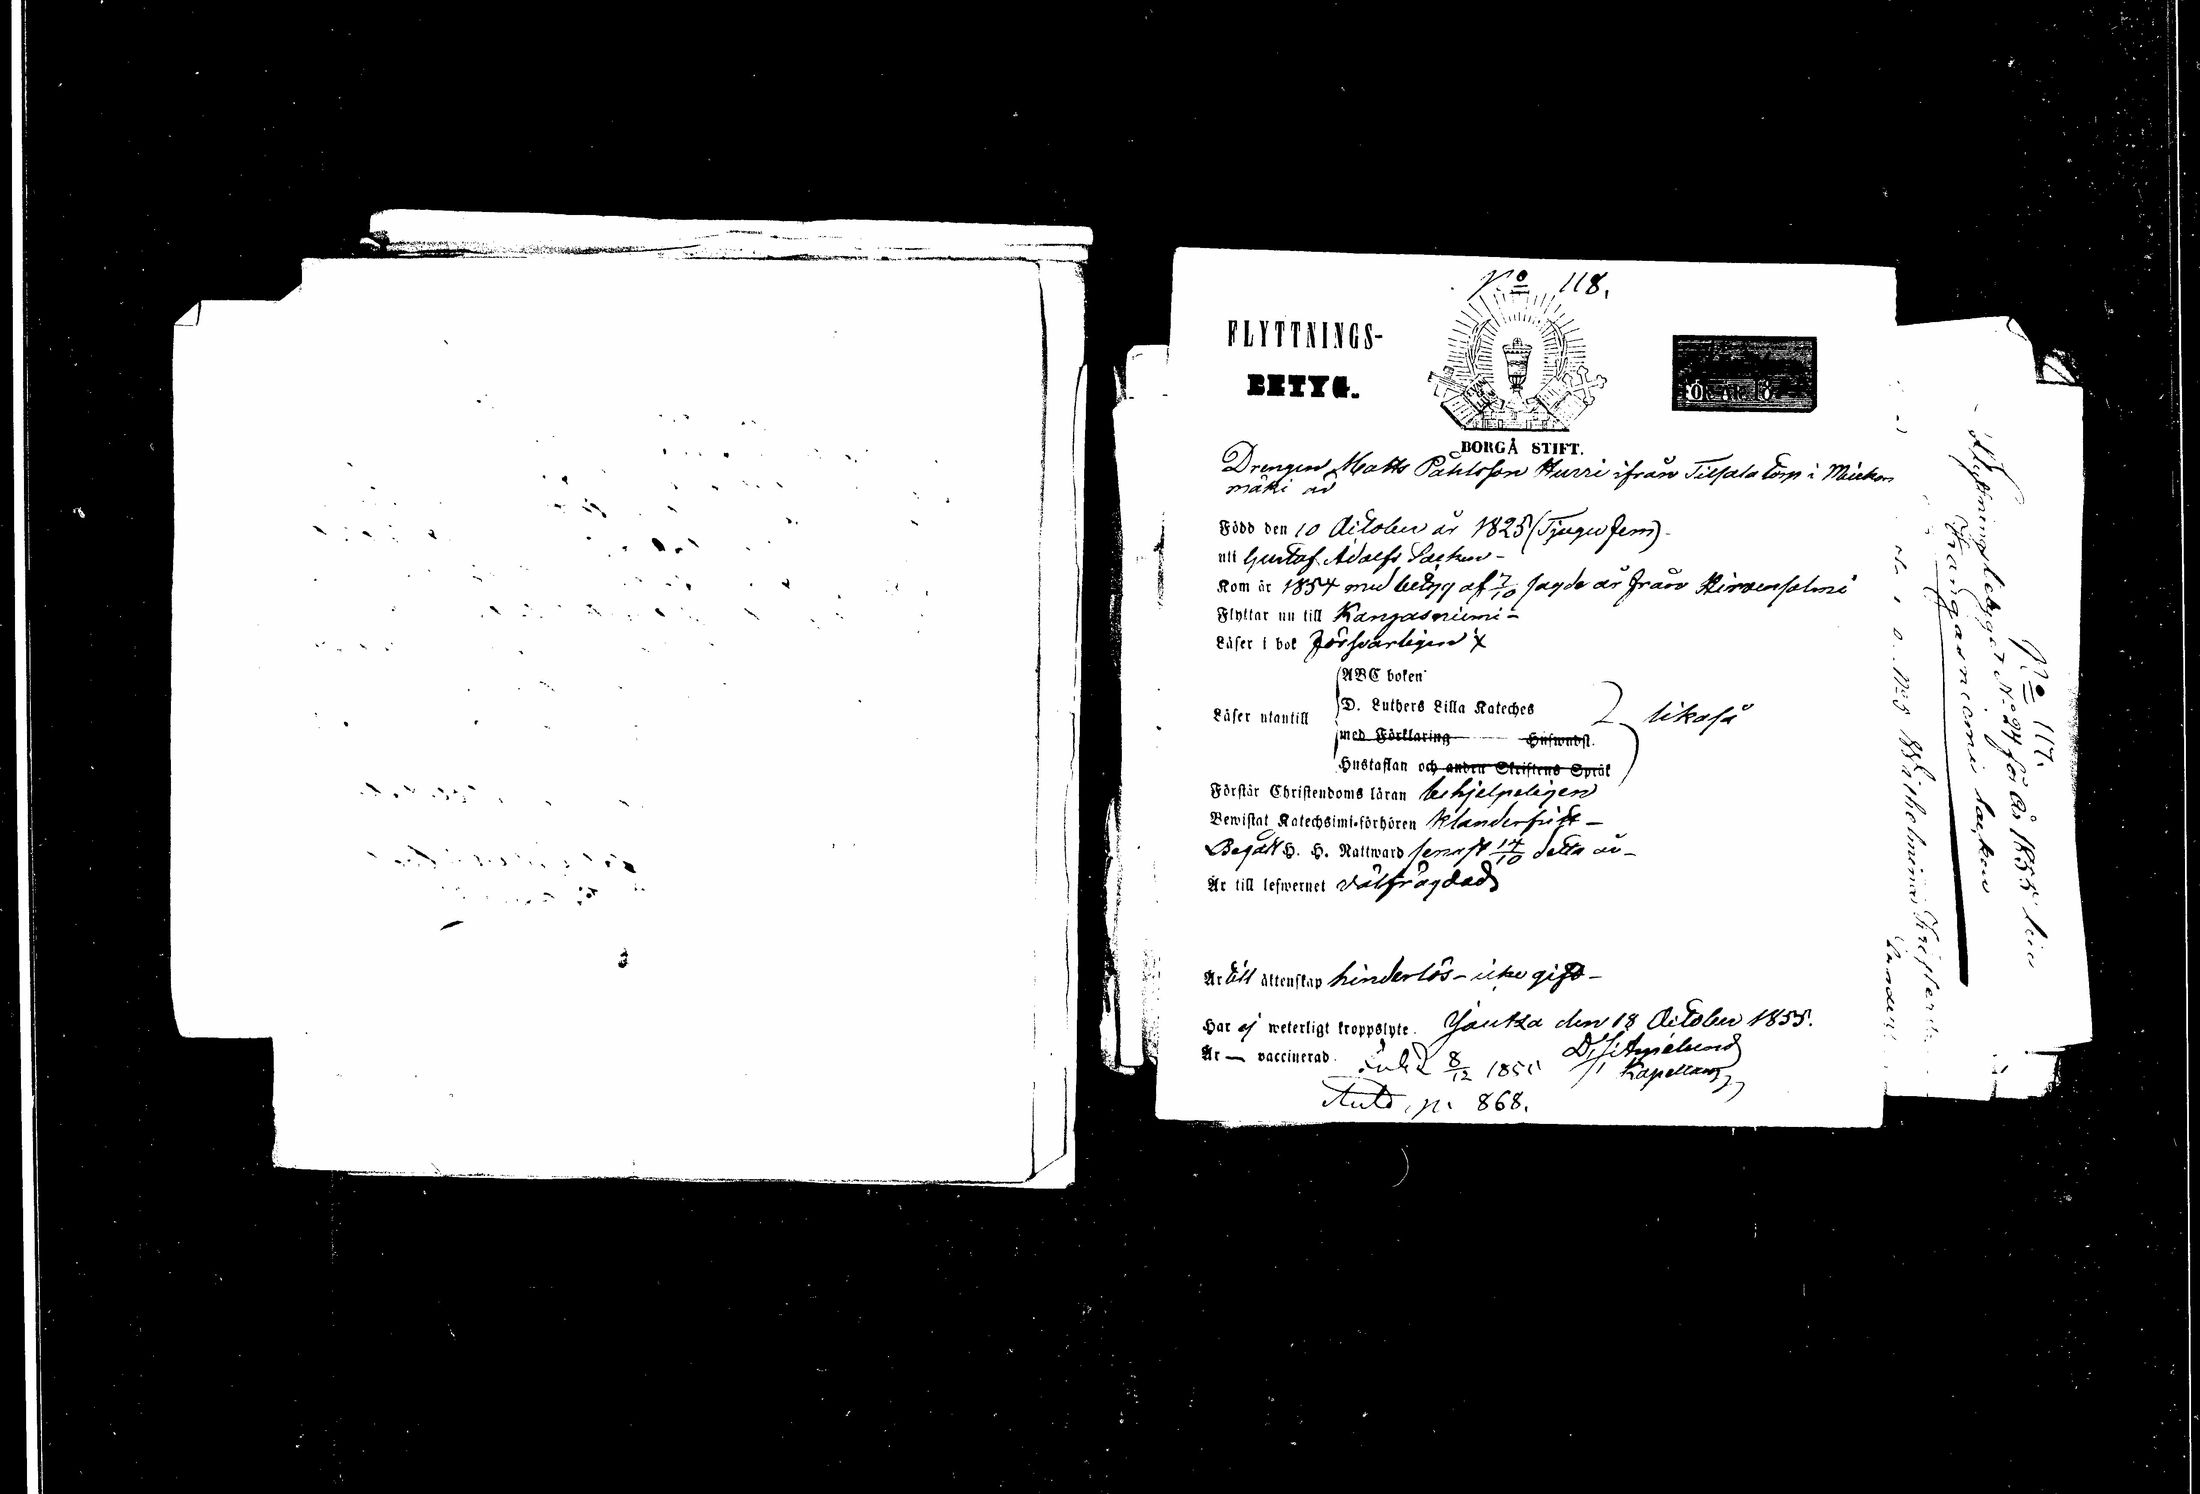 No 118.
FLYTTNINGS-
BETYG.
BORGÅ STIFT.
Drengen Matts Påhlsson Hurri ifrån Tilsala torp i Mickon
mäki är
Född den 10 October år 1825 (Tjugu fem)-
uti Gustaf Adolfs Socken-
Kom år 1854 med betyg af 7/10 sagde år från Hirvensalmi
Flyttar nu till Kangasniemi-
Läser i bok försvarligen
ABC boken
Läser utantill
D. Luthers Lilla Kateches
med Förklaring Huswudst.
likaså
Hustaflan och andra Skriftens Språk
Förstår Christendoms läran behjelpeligen
Bewistat Katechsimi-förhören klanderfritt-
Begått H. H. Nattward senast 14/10 detta år-
Är till lefwernet välfrägdad
Är till äktenskap hinderlös- icke gift-
Har ej weterligt kroppslyte. Joutsa den 18 October 1855.
Är — vaccinerad.
8/12 1855
Kapellan
p. 868.
No 117.
Flyttningsbetyget No 24 för år 1855 hin
Kangasniemi socken
Wilhelmina